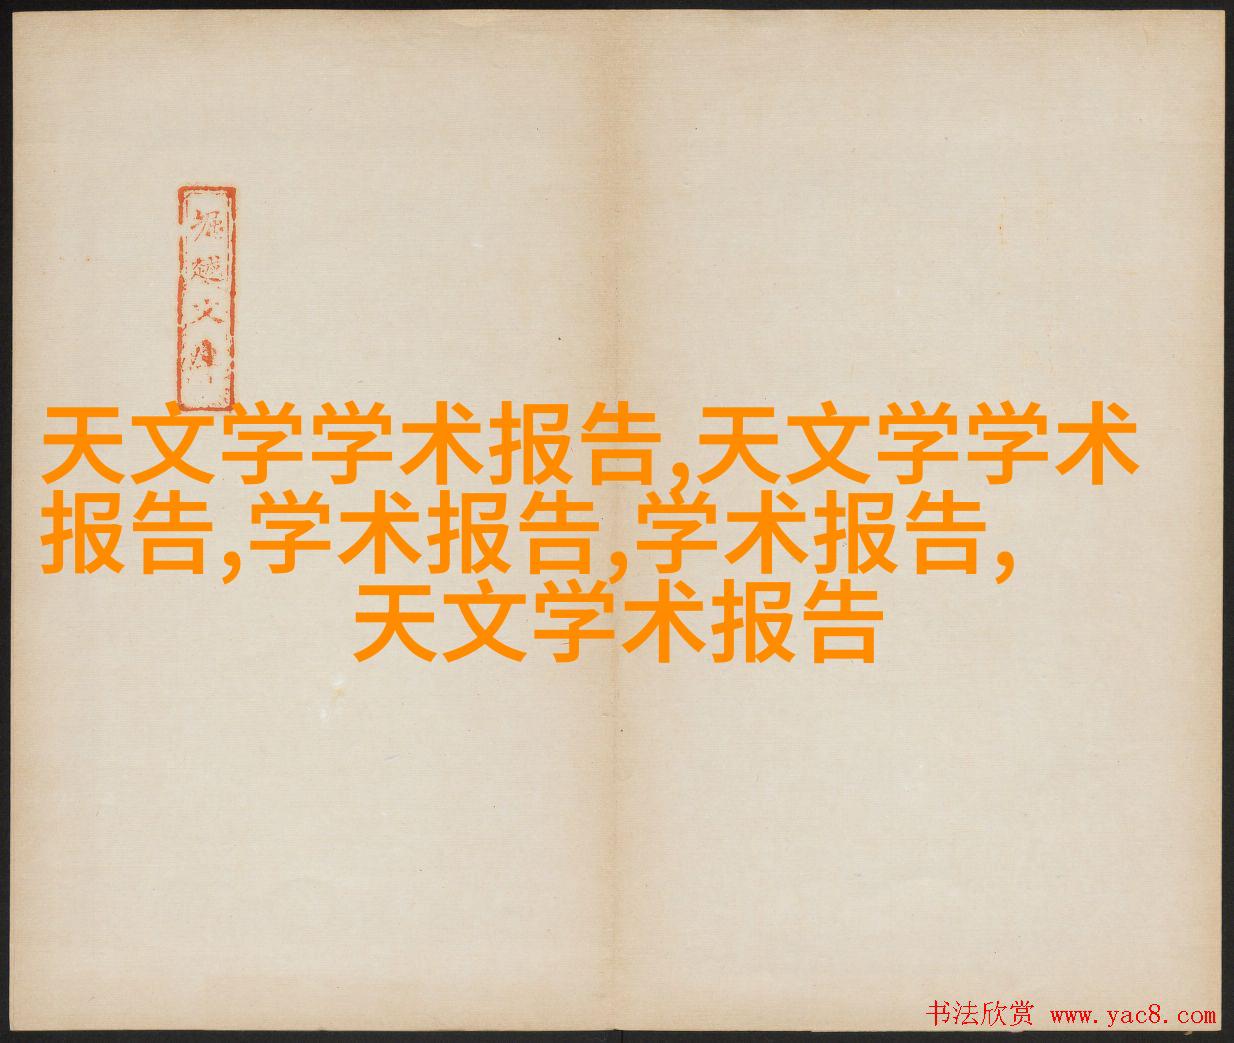 天文学学术报告,天文学学术
报告,学术报告,学术报告,
天文学术报告
书法欣赏 www.yac8.com